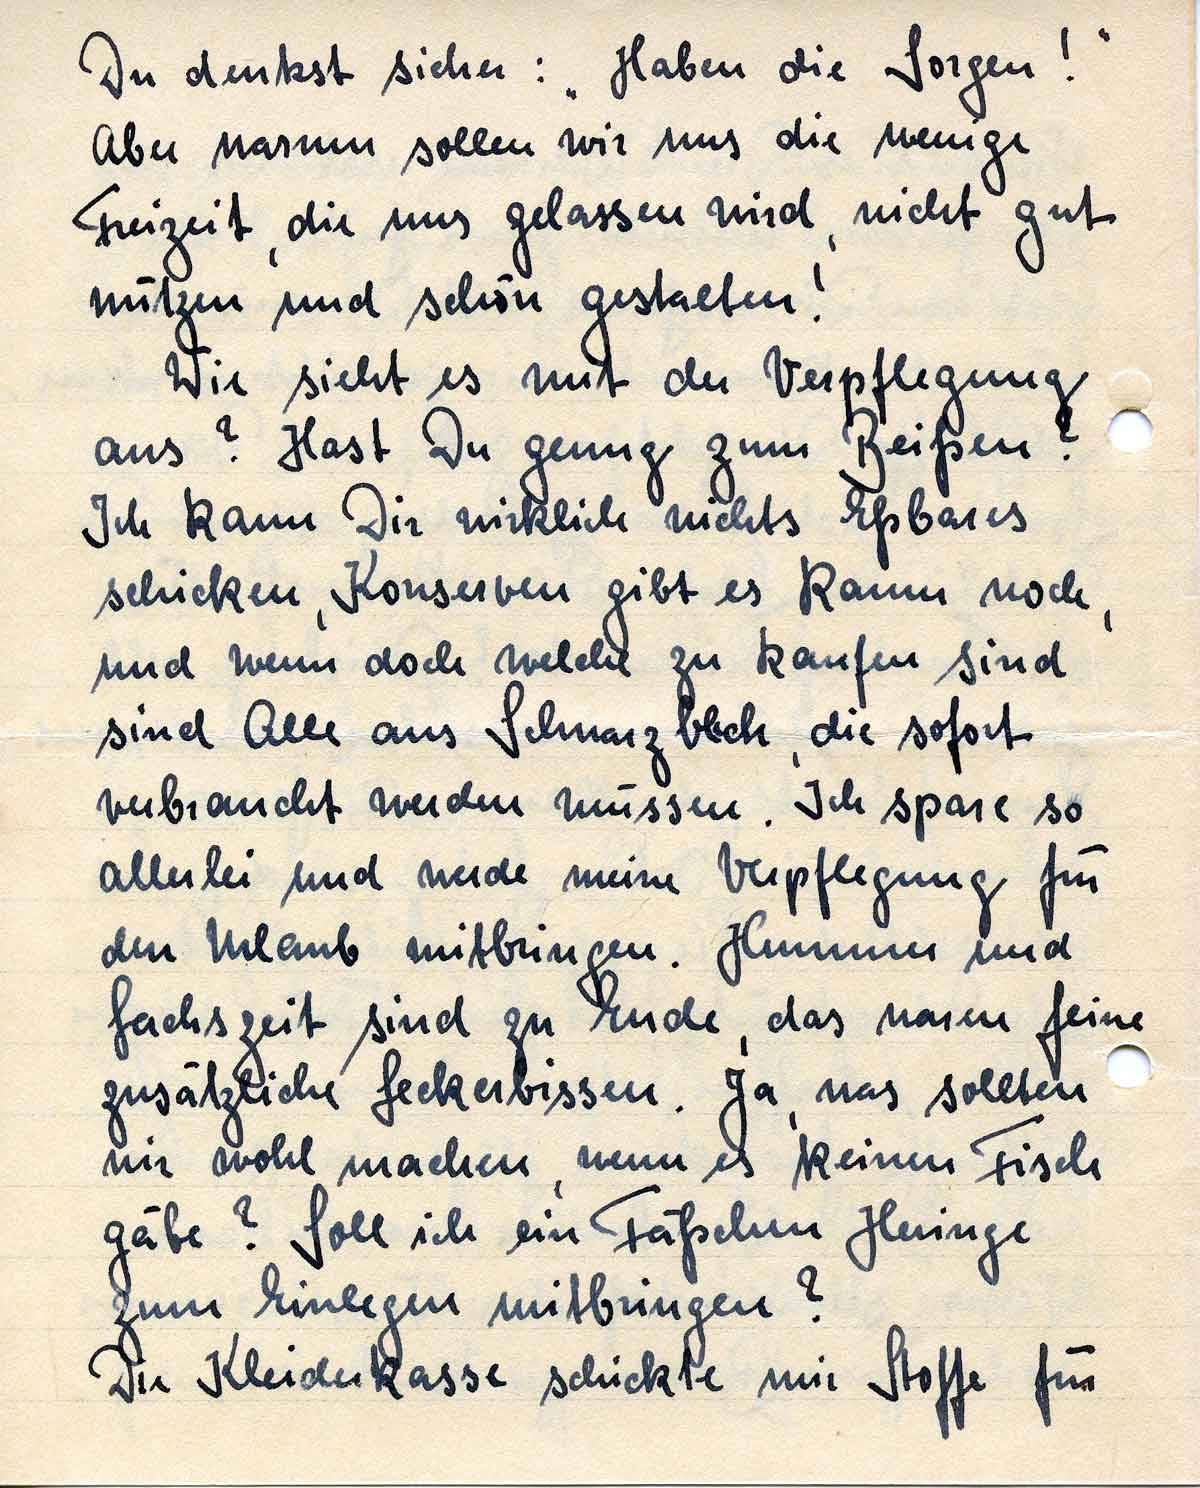 Du denkst sicher: „Haben die Sorgen!"
Aber warum sollen wir uns die wenige
Freizeit, die uns gelassen wird, nicht gut
nützen und schön gestalten!
Wie sieht es mit der Verpflegung
aus? Hast Du genug zum Beißen?
Ich kann Dir wirklich nichts Eßbares
schicken, Konserven gibt es kaum noch,
und wenn doch welche zu kaufen sind
sind Alle aus Schwarzblech, die sofort
verbraucht werden müssen. Ich spare so
allerlei und werde meine Verpflegung für
den Urlaub mitbringen. Hummer und
Lachszeit sind zu Ende, das waren feine
zusätzliche Leckerbissen. Ja, was sollten
wir wohl machen, wenn es keinen Fisch
gäbe? Soll ich ein Fäßchen Heringe
zum Einlegen mitbringen?
Die Kleiderkasse schickte mir Stoffe für